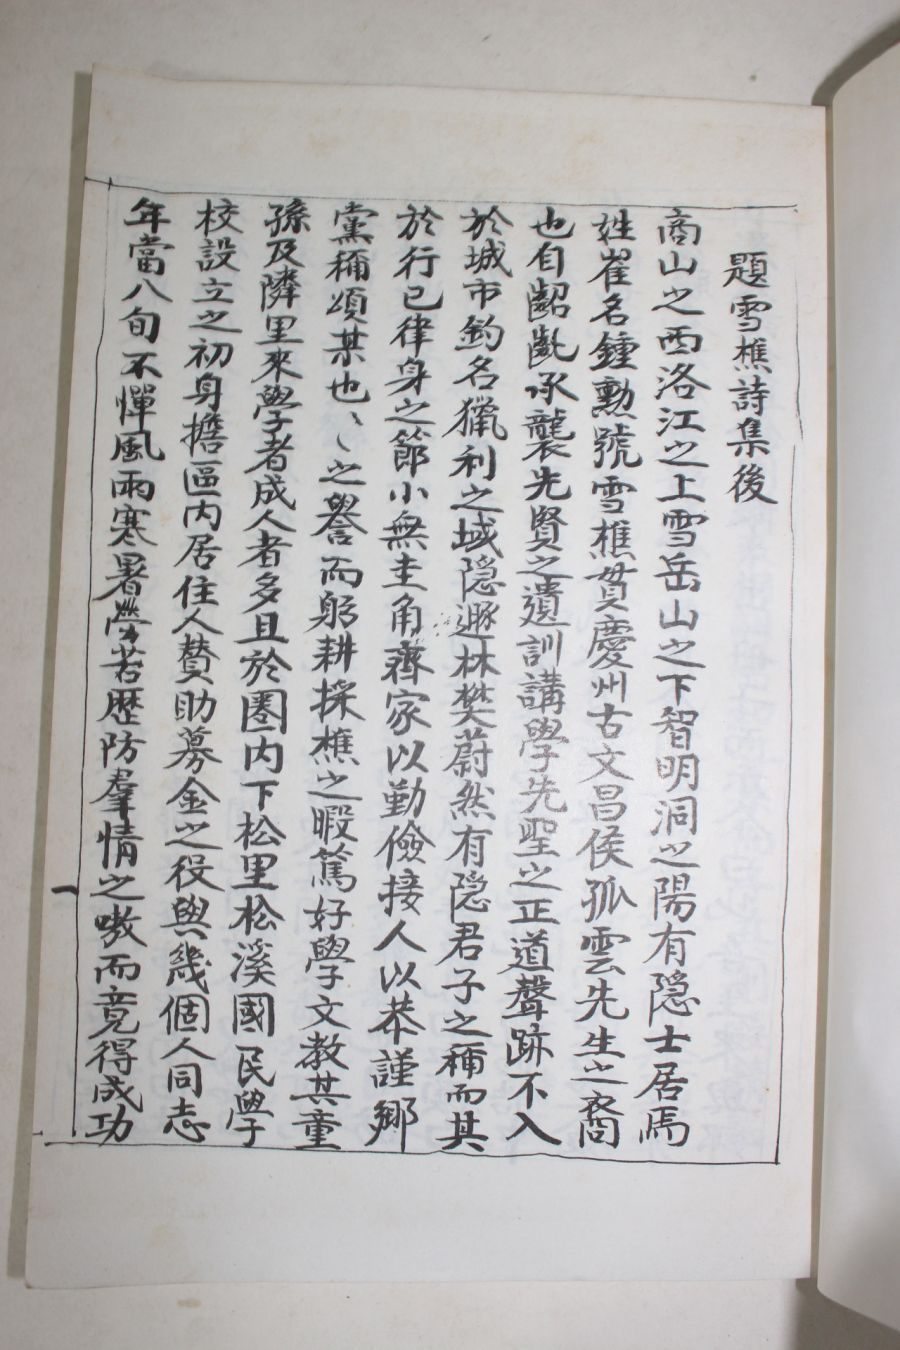 題雪樵詩集後
商山之西洛江之上雪岳山之下智明洞之陽有隐士居焉
姓崔名鍾勲號雪樵貫慶州古文昌侯孤雲先生之裔
也自齠齔承襲先賢之遺訓講學先聖之正道聲跡不入
於城市釣名獵利之域隐遯林樊蔚然有隐君子之稱而其
於行已律身之節小無圭角齊家以勤儉接人以恭謹鄉
黨稱頌某也〻之譽而躬耕採樵之暇篤好學文教其童
孫及隣里來學者成人者多且於圏内下松里松溪國民學
校設立之初身擔區内居住人賛助募金之役與幾個人同志
年當八旬不憚風雨寒暑學若歷防羣情之嗷而竟得成功
一